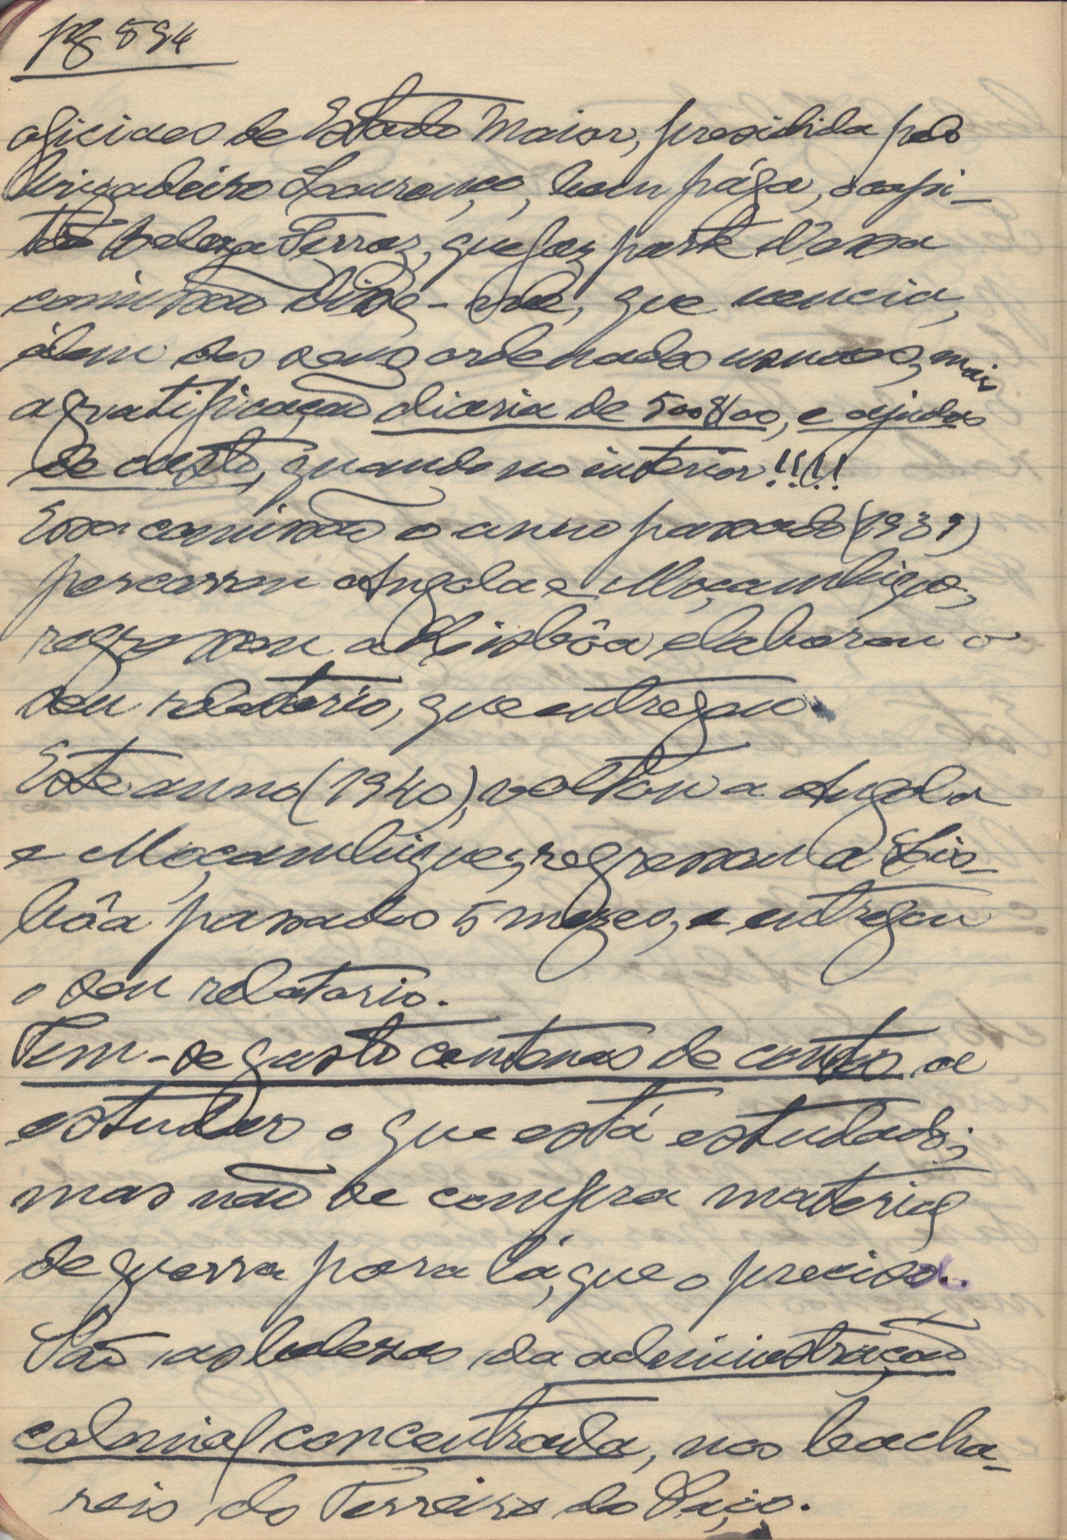 pg 594
oficiaes de Estado Maior, presidida pelo
Brigadeiro Lourenço, bem paga, o capi-
tão Beleza Ferraz, que faz parte d'essa
comissão disse-me, que vencia,
além dos seus ordenados usuaes, mais
a gratificação diaria de 500$00, e ajudas
de custo, quando no interior!!!!
Essa comissão o anno passado (1939)
percorreu Angola e Moçambique,
regressou a Lisbôa elaborou o
seu relatorio, que entregou.
Este anno (1940), voltou a Angola
e Moçambique, regressou a Lis-
bôa passados 5 mezes, e entregou
o seu relatorio.
Tem-se gasto centenas de contos a
estudar o que está estudado;
mas não se compra material
de guerra para lá, que o precisa..
São as belezas da administração
colonial concentrada, nos bacha-
reis do Terreiro do Paço.